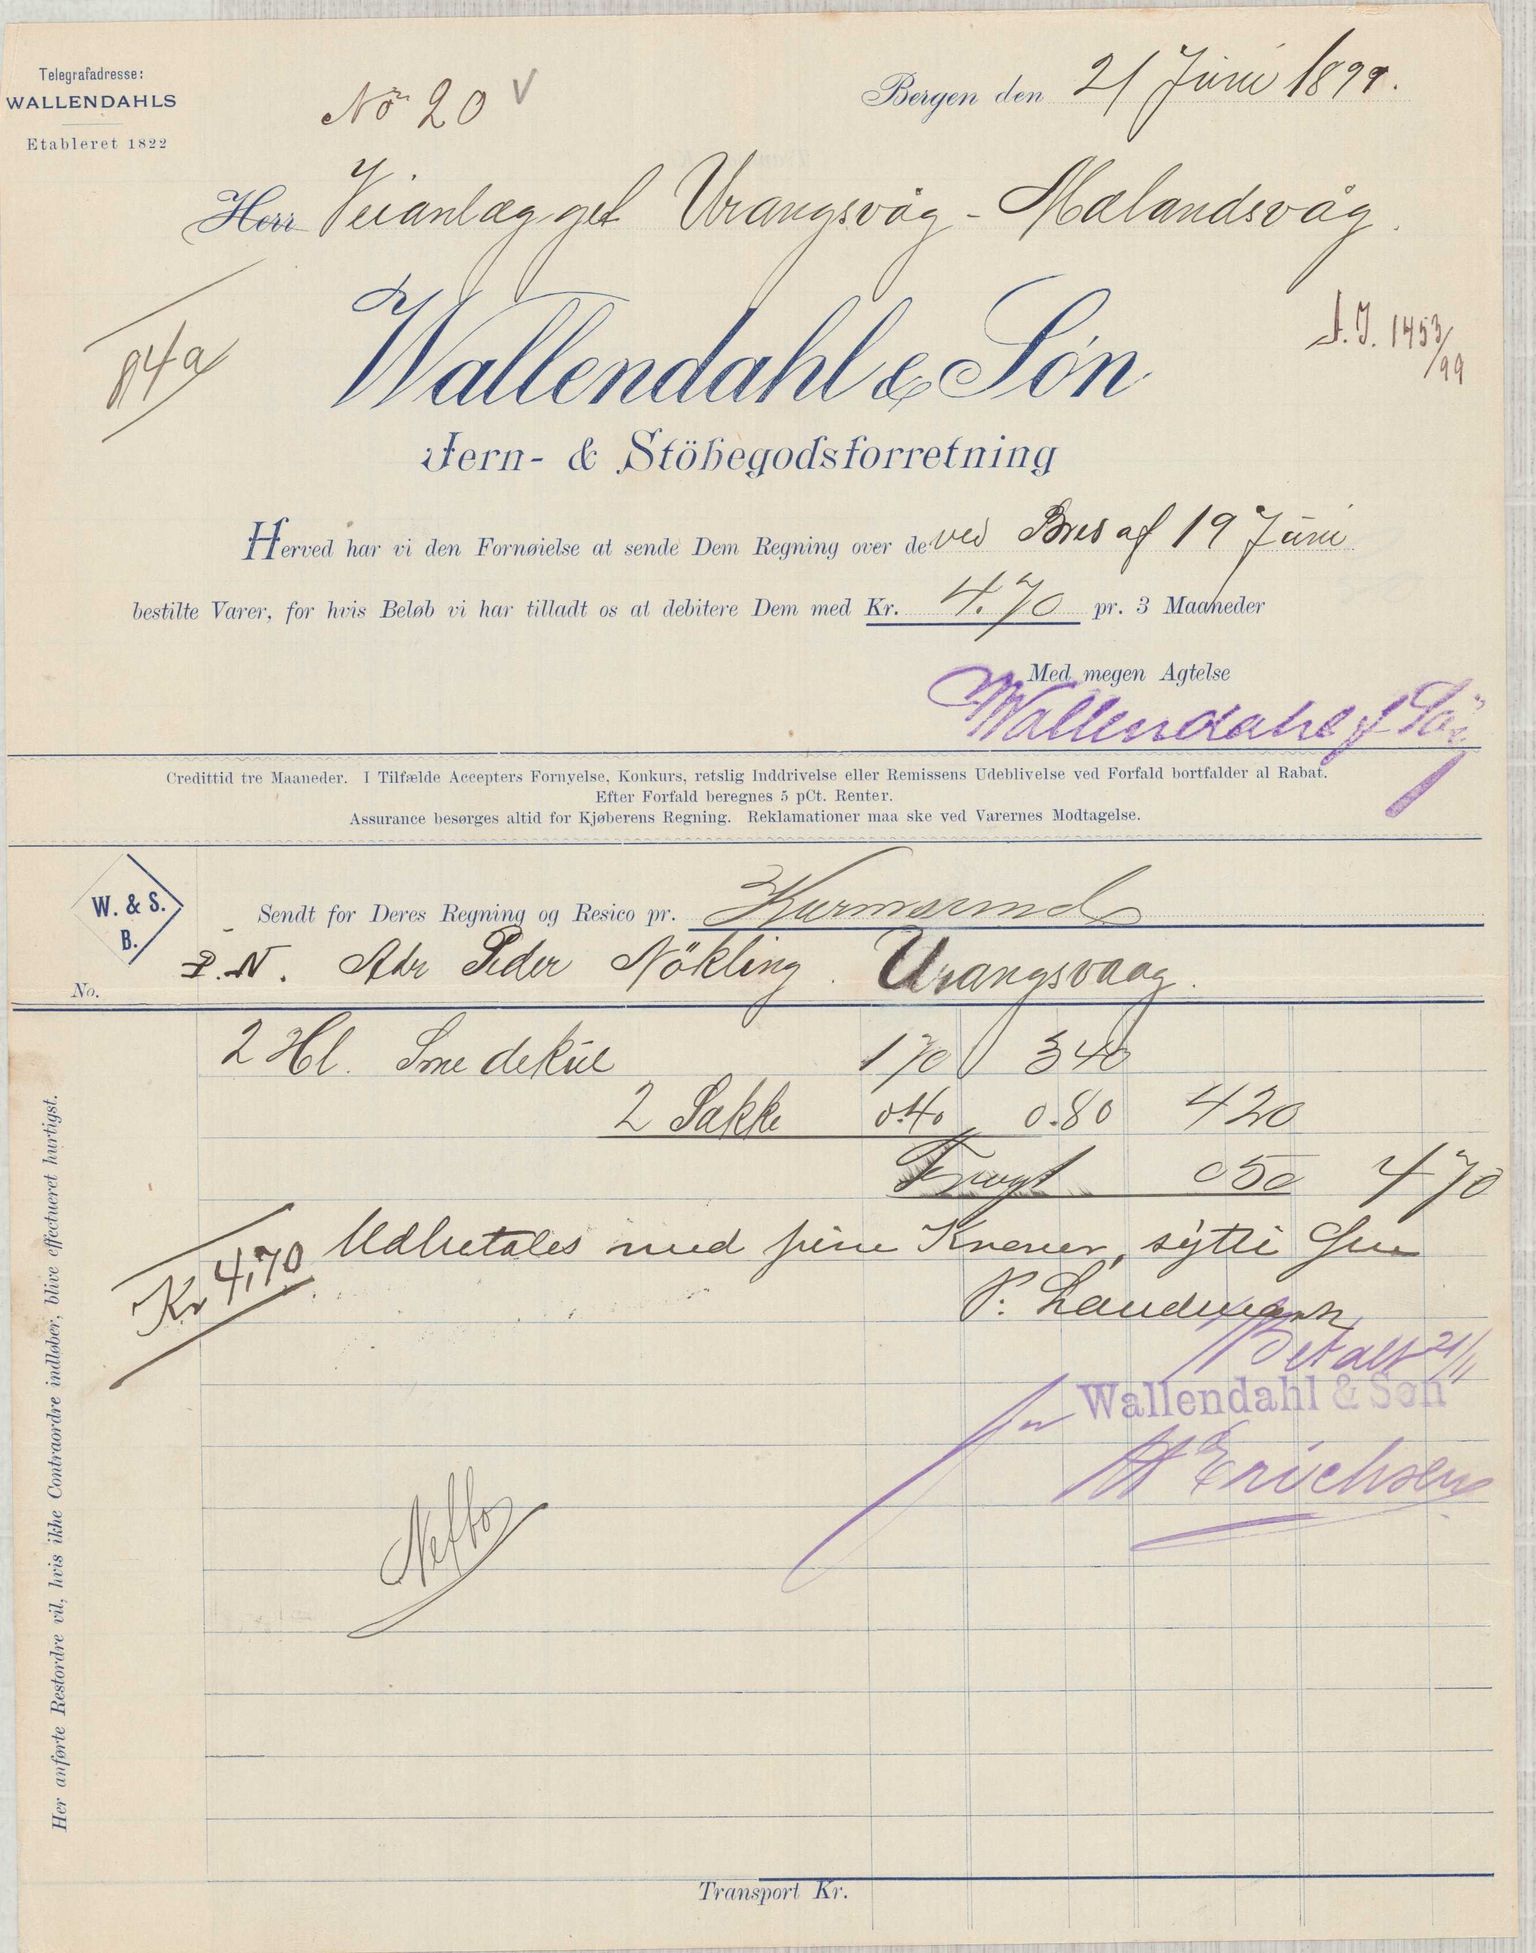 Telegrafadresse:
WALLENDAHLS
Etableret 1822
No 20 V
Bergen den 21 Juni 1899.
Herr Veianlægget Urangsvåg - Mælandsvåg.
84a
J. J. 1453/99
Wallendahl & Søn
Jern- & Stöbegodsforretning
Herved har vi den Fornøielse at sende Dem Regning over de ved Brev af 19 Juni
bestilte Varer, for hvis Beløb vi har tilladt os at debitere Dem med Kr. 4.70 pr. 3 Maaneder
Med megen Agtelse
Wallendahl & Søn
Credittid tre Maaneder. I Tilfælde Accepters Fornyelse, Konkurs, retslig Inddrivelse eller Remissens Udeblivelse ved Forfald bortfalder al Rabat.
Efter Forfald beregnes 5 pCt. Renter.
Assurance besørges altid for Kjøberens Regning. Reklamationer maa ske ved Varernes Modtagelse.
W. & S.
B.
Sendt for Deres Regning og Resico pr. Karmsund
P. N. Adr Peder Nökling. Urangsvaag.
No.
2 Hl. Smedekul 1 70 3 40
2 Sække 0.40 0.80 4 20
Fragt 0 50 4 70
Udbetales med fire Kroner, sytti Øre
Kr 4,70
P. Landmark
Betalt 21/11
for Wallendahl & Søn
W Erichsen
Nesbø
Her anførte Restordre vil, hvis ikke Contraordre indløber, blive effectueret hurtigst.
Transport Kr.